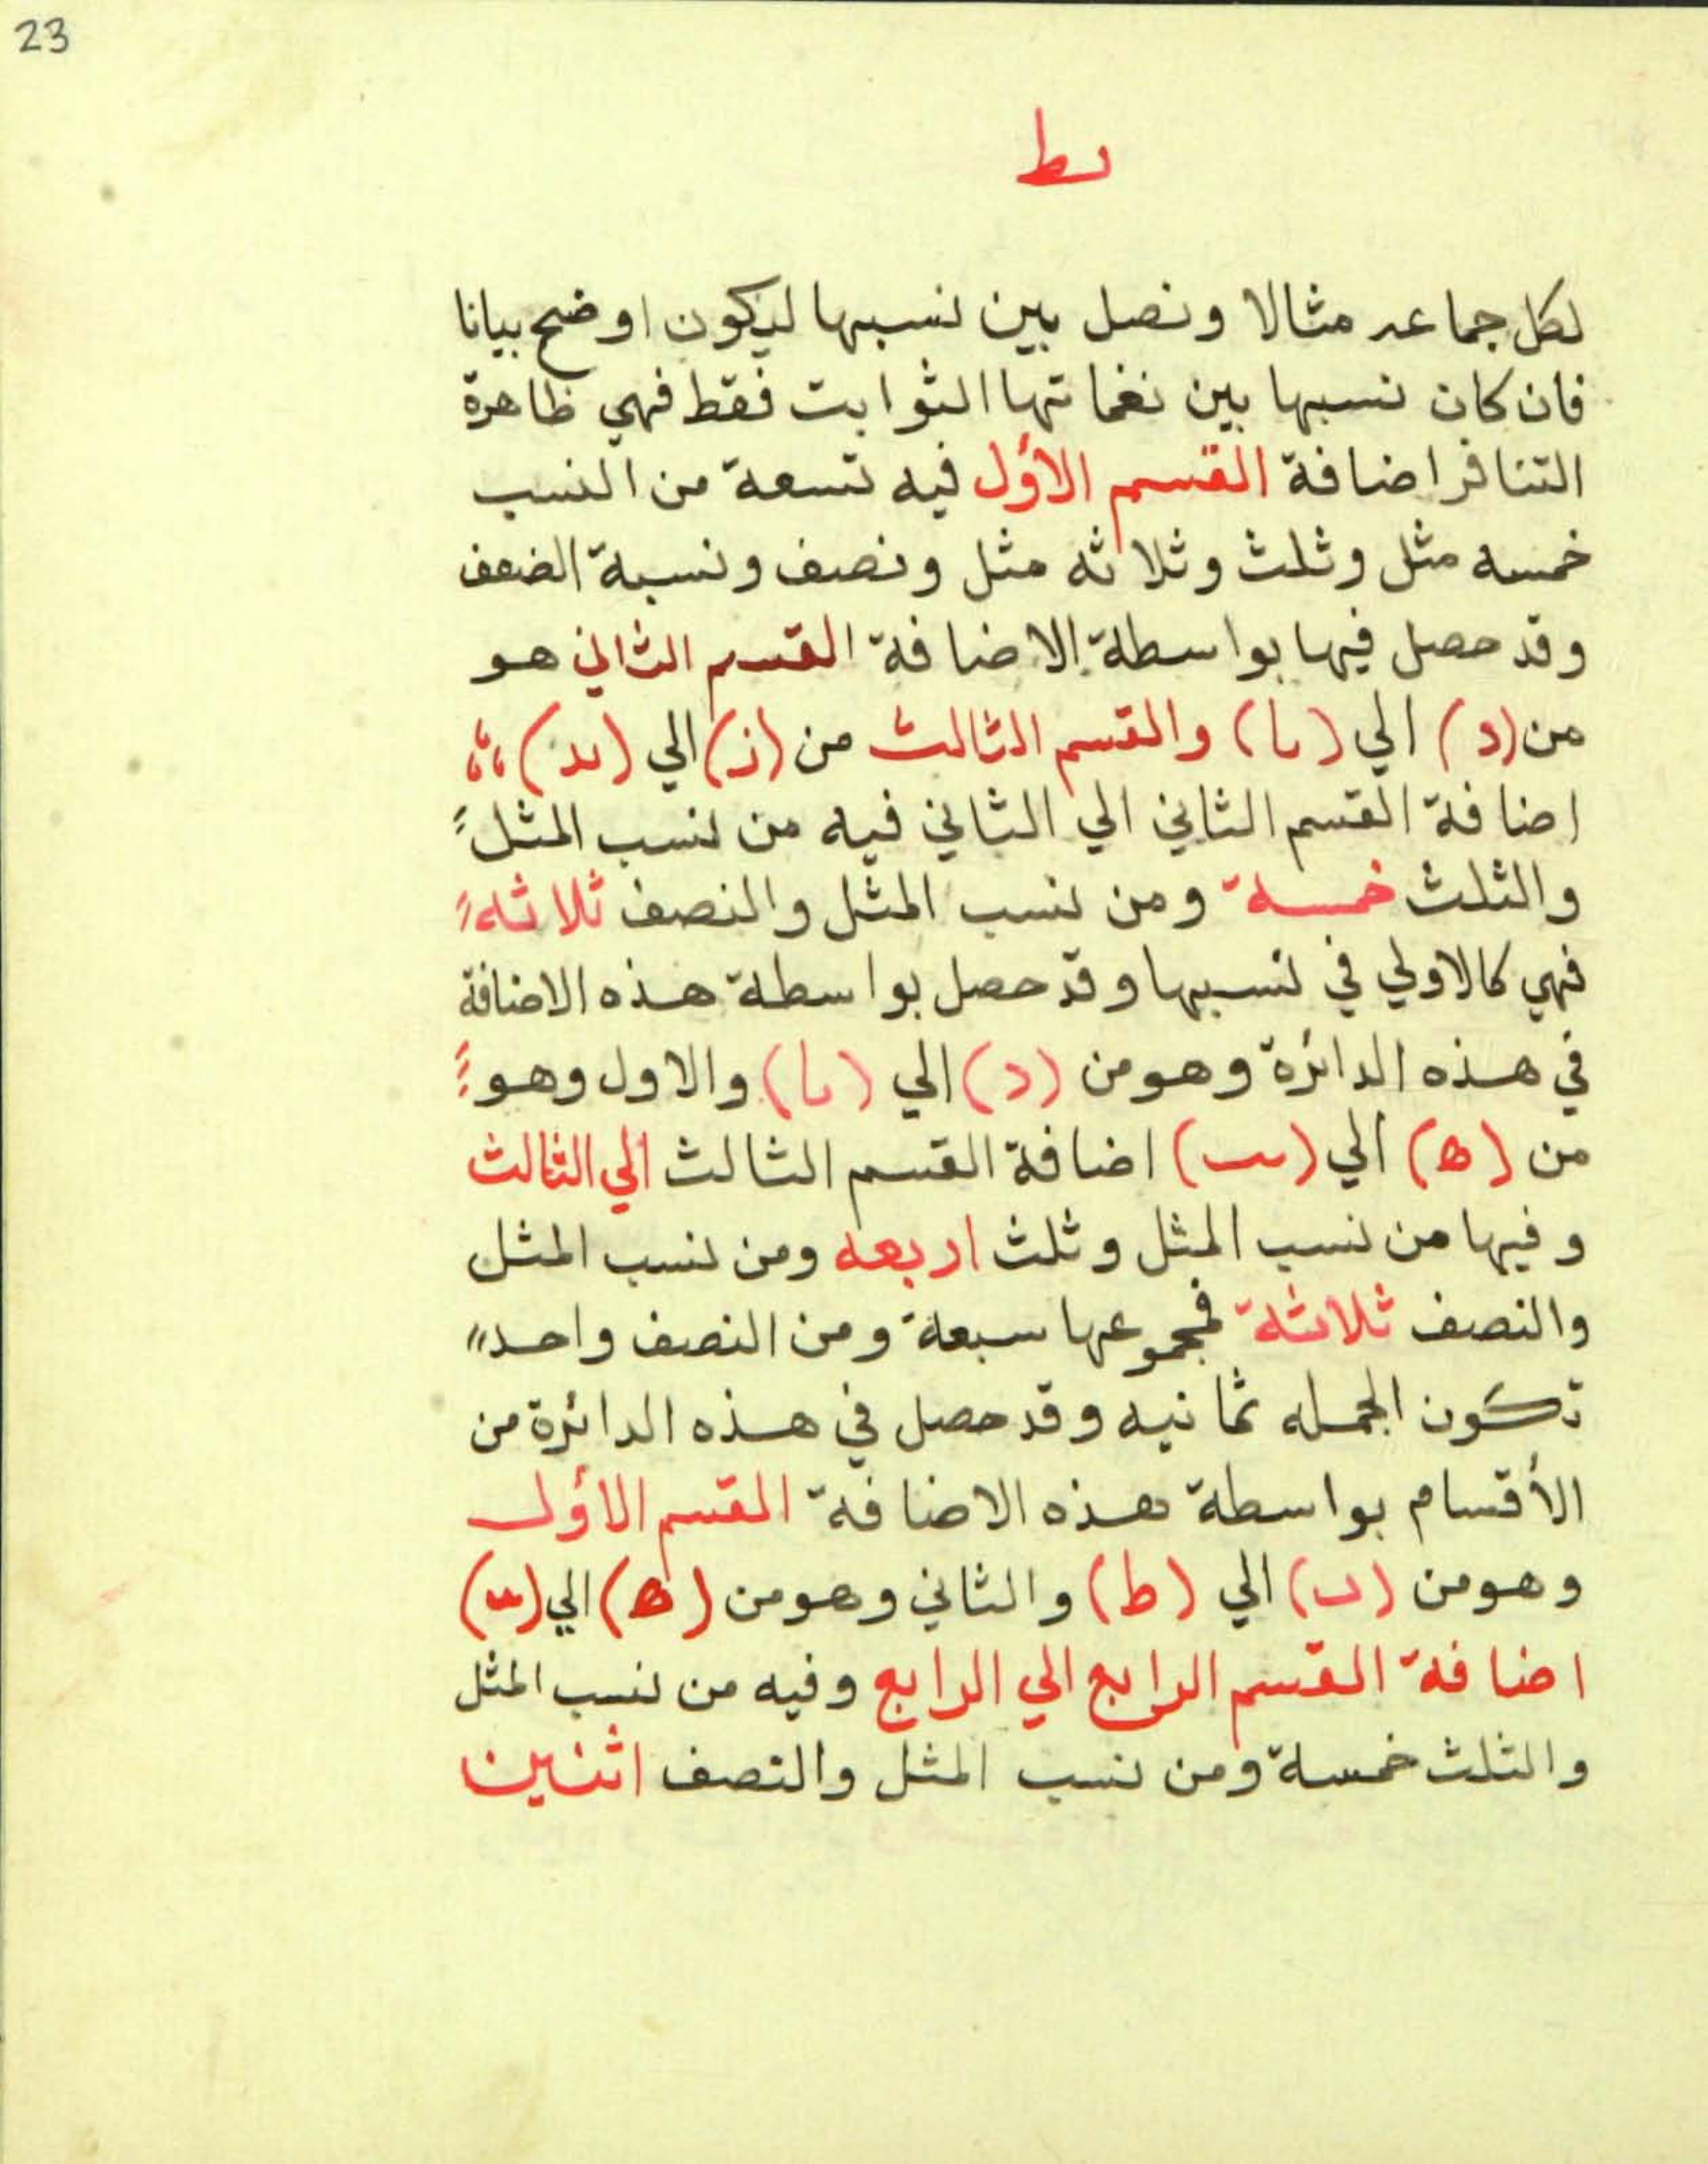 23
ىط
لكل جماعه مثالا ونصل بين نسبها ليكون اوضح بيانا
فان كان نسبها بين نغماتها الثوابت فقط فهي ظاهرة
التنافر اضافة القسم الأول فيه تسعة من النسب
خمسه مثل وثلث وثلاثه مثل ونصف ونسبة الضعف
وقد حصل فيها بواسطة الاضافة القسم الثاني هو
من (د) الي (ىا) والقسم الثالث من (ز) الي (ىد) ؛؛
اضافة القسم الثاني الي الثاني فيه من نسب المثل
والثلث خمسة ومن نسب المثل والنصف ثلاثه
فهي كالاولي في نسبها وقد حصل بواسطة هذه الاضافة
في هذه الدائرة وهو من (د) الي (ىا) والاول وهو
من (ه) الي (ىب) اضافة القسم الثالث الي الثالث
وفيها من نسب المثل وثلث اربعه ومن نسب المثل
والنصف ثلاثة فمجموعها سبعة ومن النصف واحد
تكون الجمله ثمانيه وقد حصل في هذه الدائرة من
الأقسام بواسطة هذه الاضافة القسم الأول
وهو من (ب) الي (ط) والثاني وهو من (ه) الي
اضافة القسم الرابع الي الرابع وفيه من نسب المثل
والثلث خمسة ومن نسب المثل والنصف اثنين